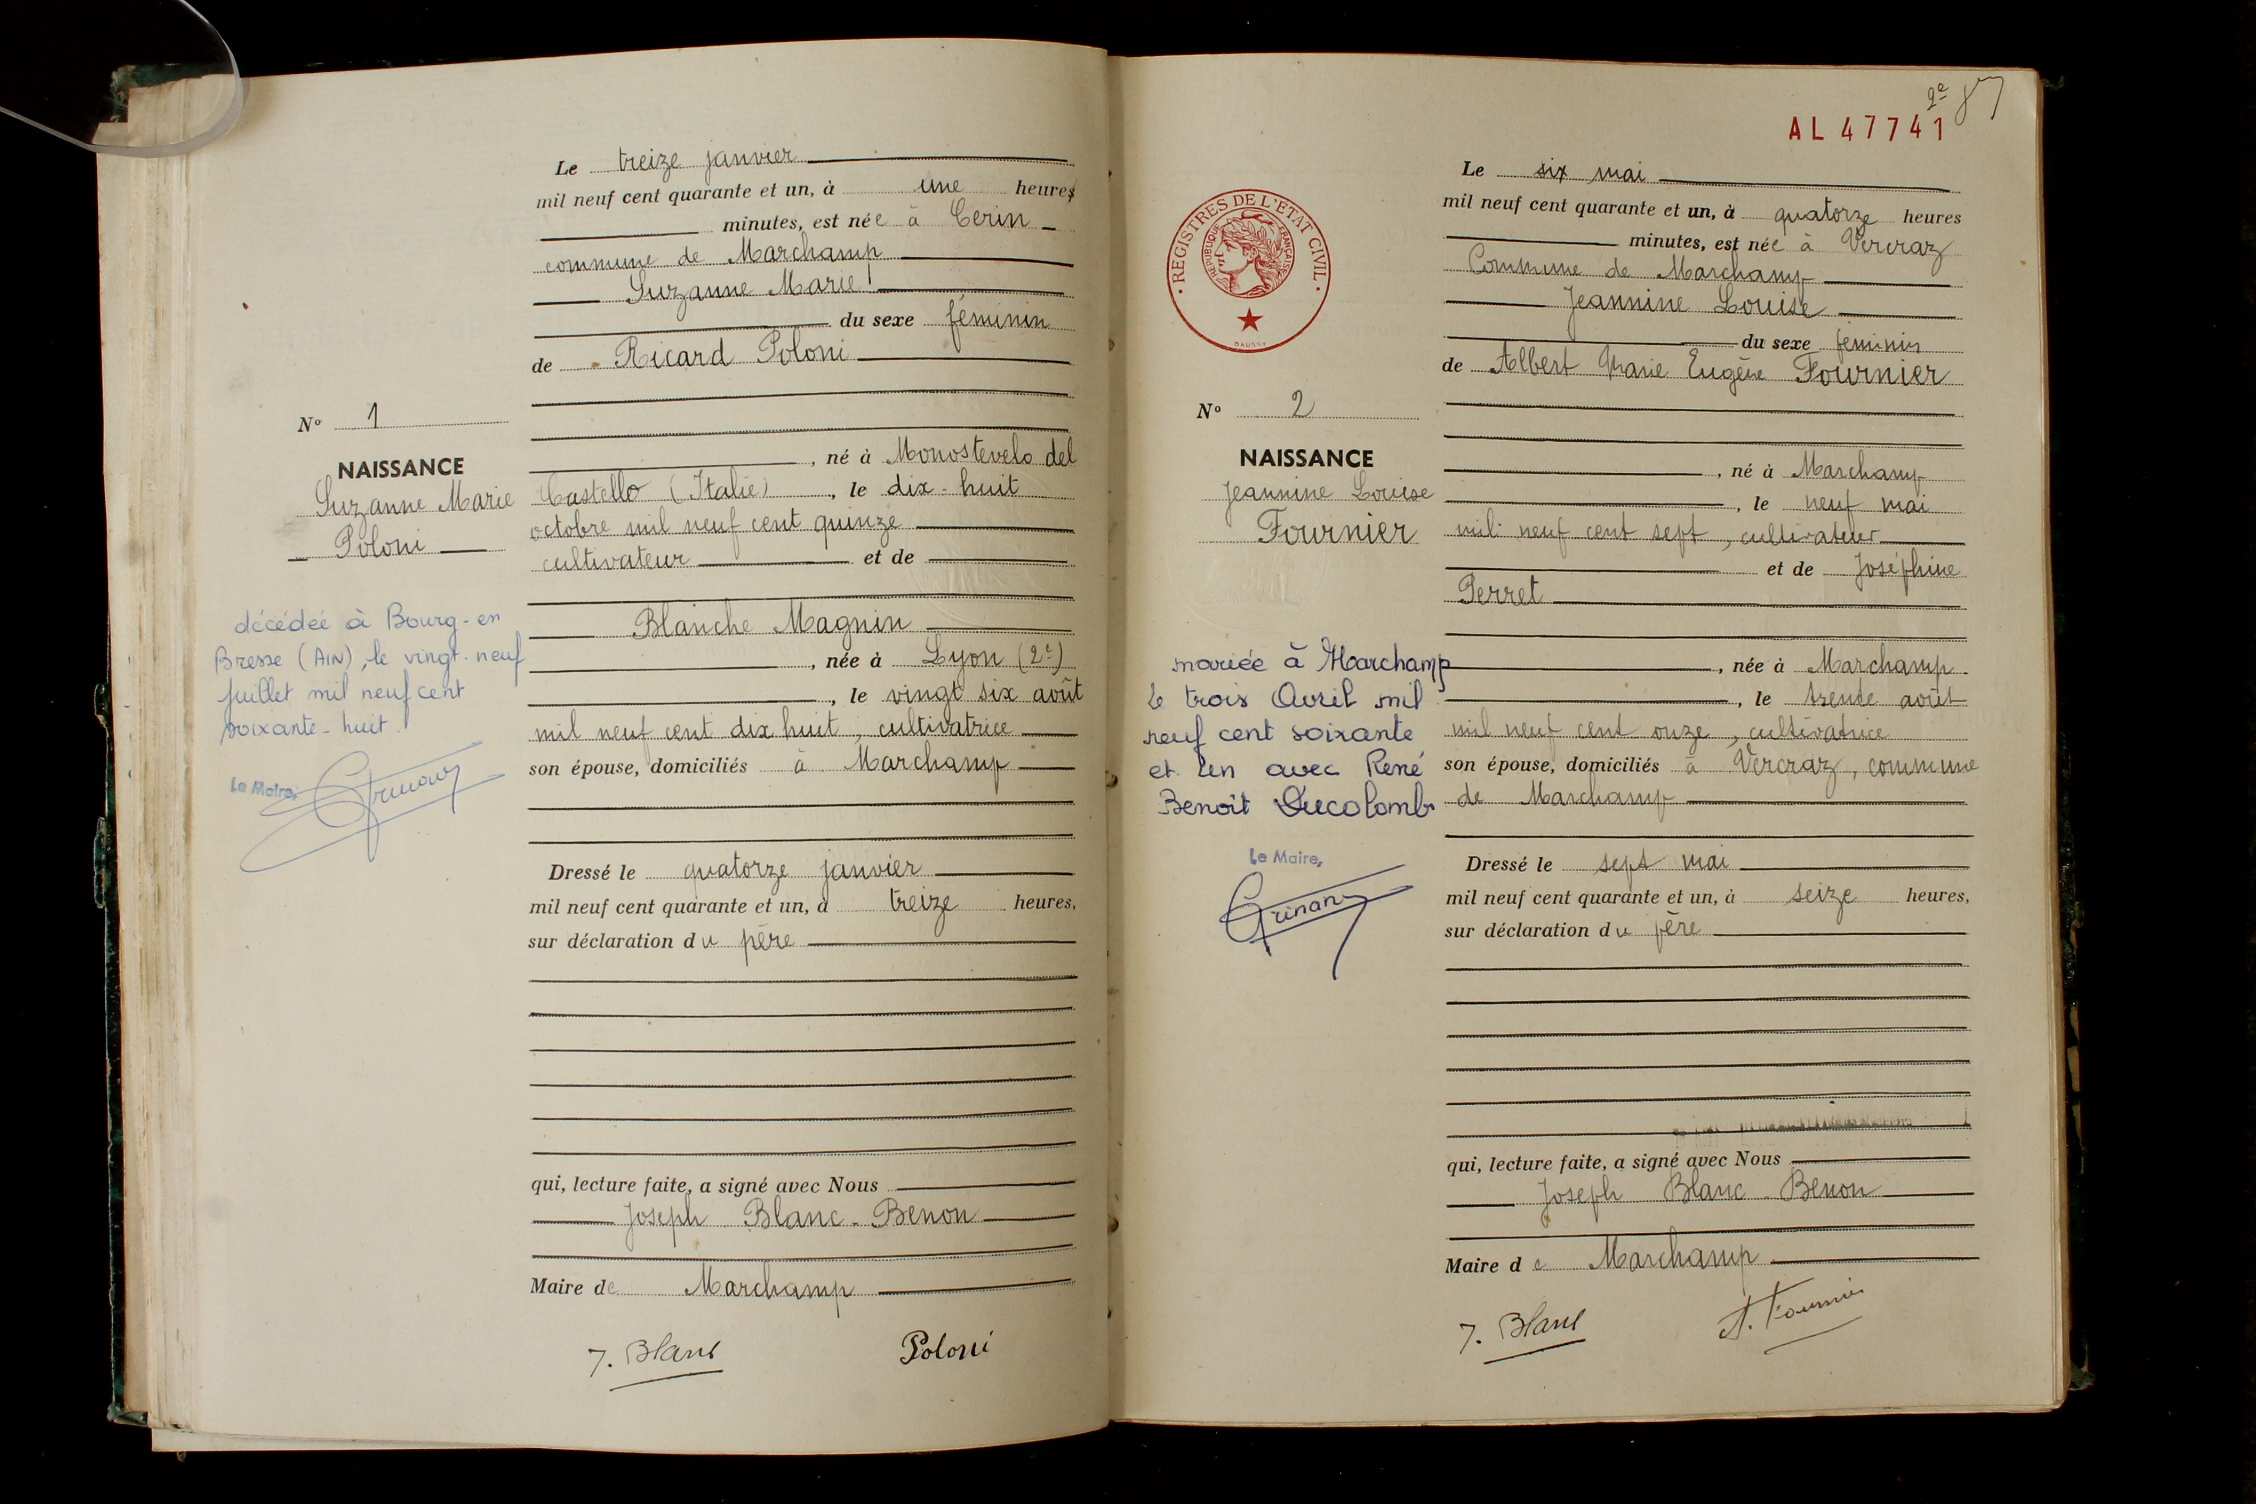 Le treize janvier
mil neuf cent quarante et un, à une heures
minutes, est née à Cerin
commune de Marchamp
Suzanne Marie
du sexe féminin
de Ricard Poloni
N° 1
NAISSANCE
Suzanne Marie
Poloni
, né à Monostevelo del
Castello (Italie), le dix-huit
octobre mil neuf cent quinze
cultivateur et de
Blanche Magnin
, née à Lyon (2e)
, le vingt six août
mil neuf cent dix huit, cultivatrice
son épouse, domiciliés à Marchamp
décédée à Bourg-en
Bresse (AIN), le vingt-neuf
juillet mil neuf cent
soixante-huit.
Le Maire,
Dressé le quatorze janvier
mil neuf cent quarante et un, à treize heures,
sur déclaration du père
qui, lecture faite, a signé avec Nous
Joseph Blanc-Benon
Maire de Marchamp
J. Blanc
Poloni
2e
AL 47741
REGISTRES DE L'ETAT CIVIL
REPUBLIQUE FRANÇAISE
DAUSSY
Le six mai
mil neuf cent quarante et un, à quatorze heures
minutes, est née à Vercraz
Commune de Marchamp
Jeannine Louise
du sexe féminin
de Albert Marie Eugène Fournier
N° 2
NAISSANCE
Jeannine Louise
Fournier
, né à Marchamp
, le neuf mai
mil neuf cent sept, cultivateur
et de Joséphine
Perret
, née à Marchamp
, le trente août
mil neuf cent onze, cultivatrice
son épouse, domiciliés à Vercraz, commune
de Marchamp
mariée à Marchamp
le trois Avril mil
neuf cent soixante
et un avec René
Benoît Ducolomb
Le Maire,
Dressé le sept mai
mil neuf cent quarante et un, à seize heures,
sur déclaration du père
qui, lecture faite, a signé avec Nous
Joseph Blanc-Benon
Maire de Marchamp
J. Blanc
A. Fournier